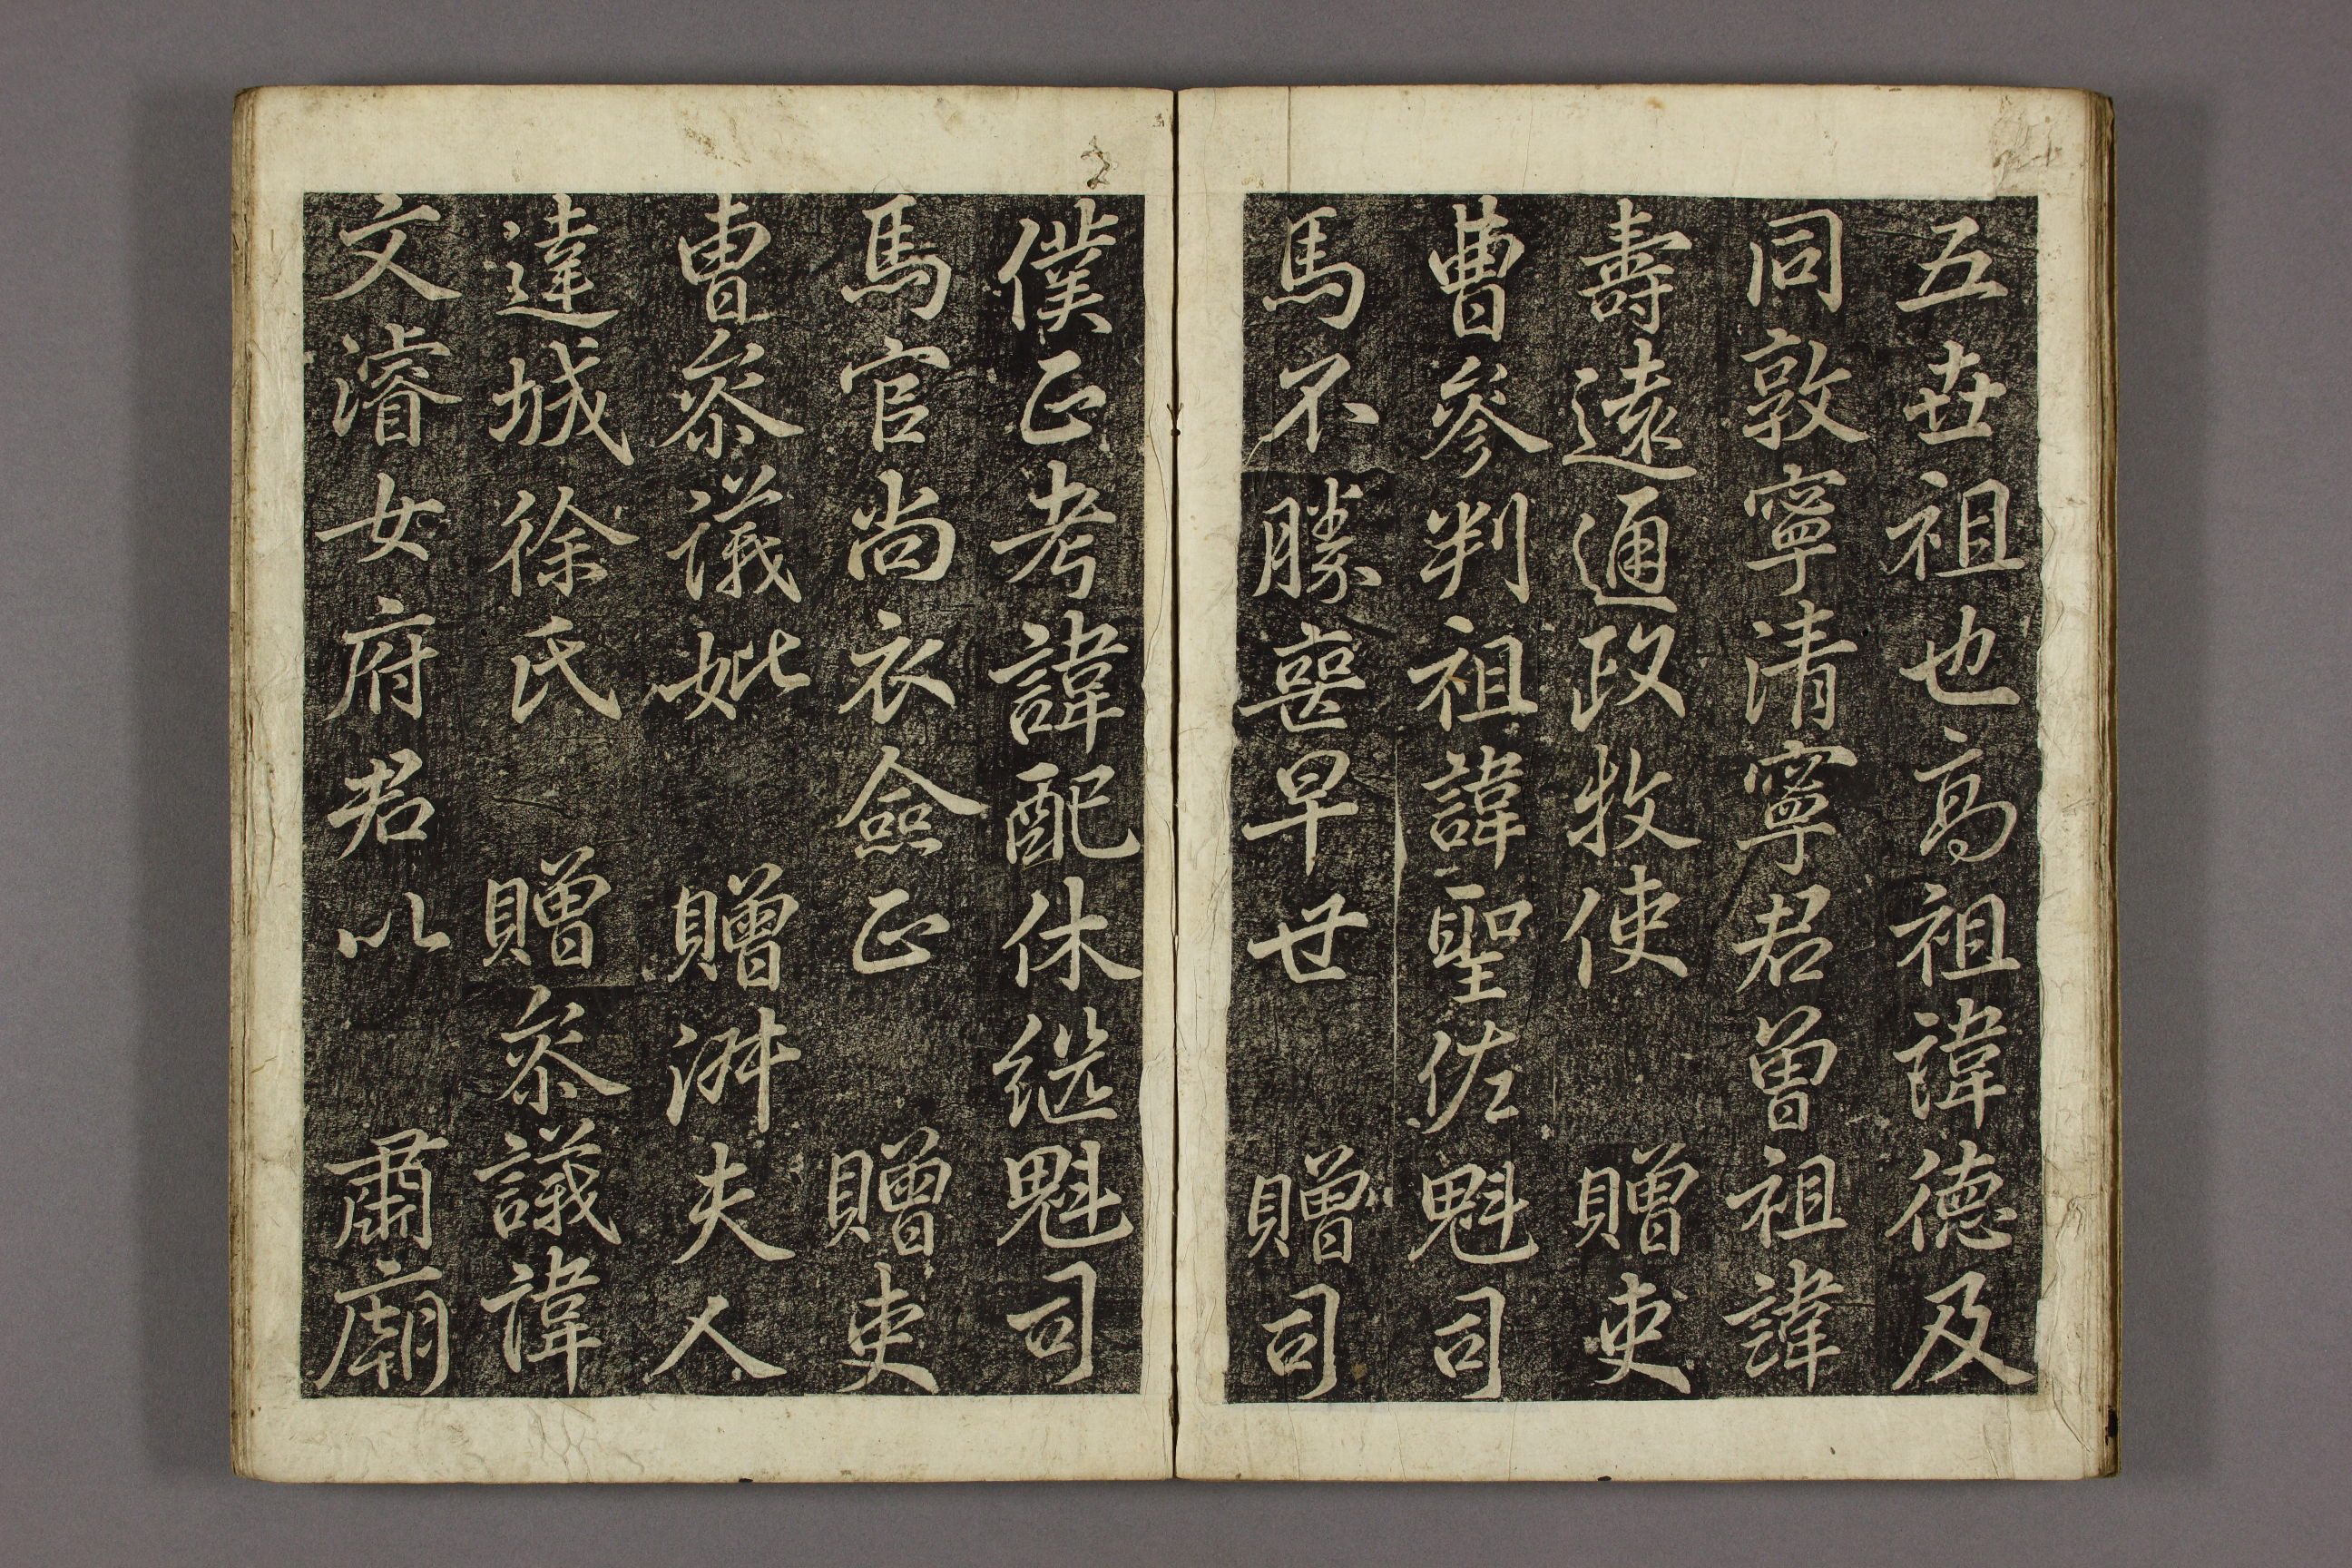 五世祖也高祖諱德及
同敦寧清寧君曾祖諱
壽遠通政牧使 贈吏
曹參判祖諱聖佐魁司
馬不勝喪早世 贈司
僕正考諱配休継魁司
馬官尚衣僉正 贈吏
曹叅議妣 贈淑夫人
達城徐氏 贈叅議諱
文濬女府君以 肅廟